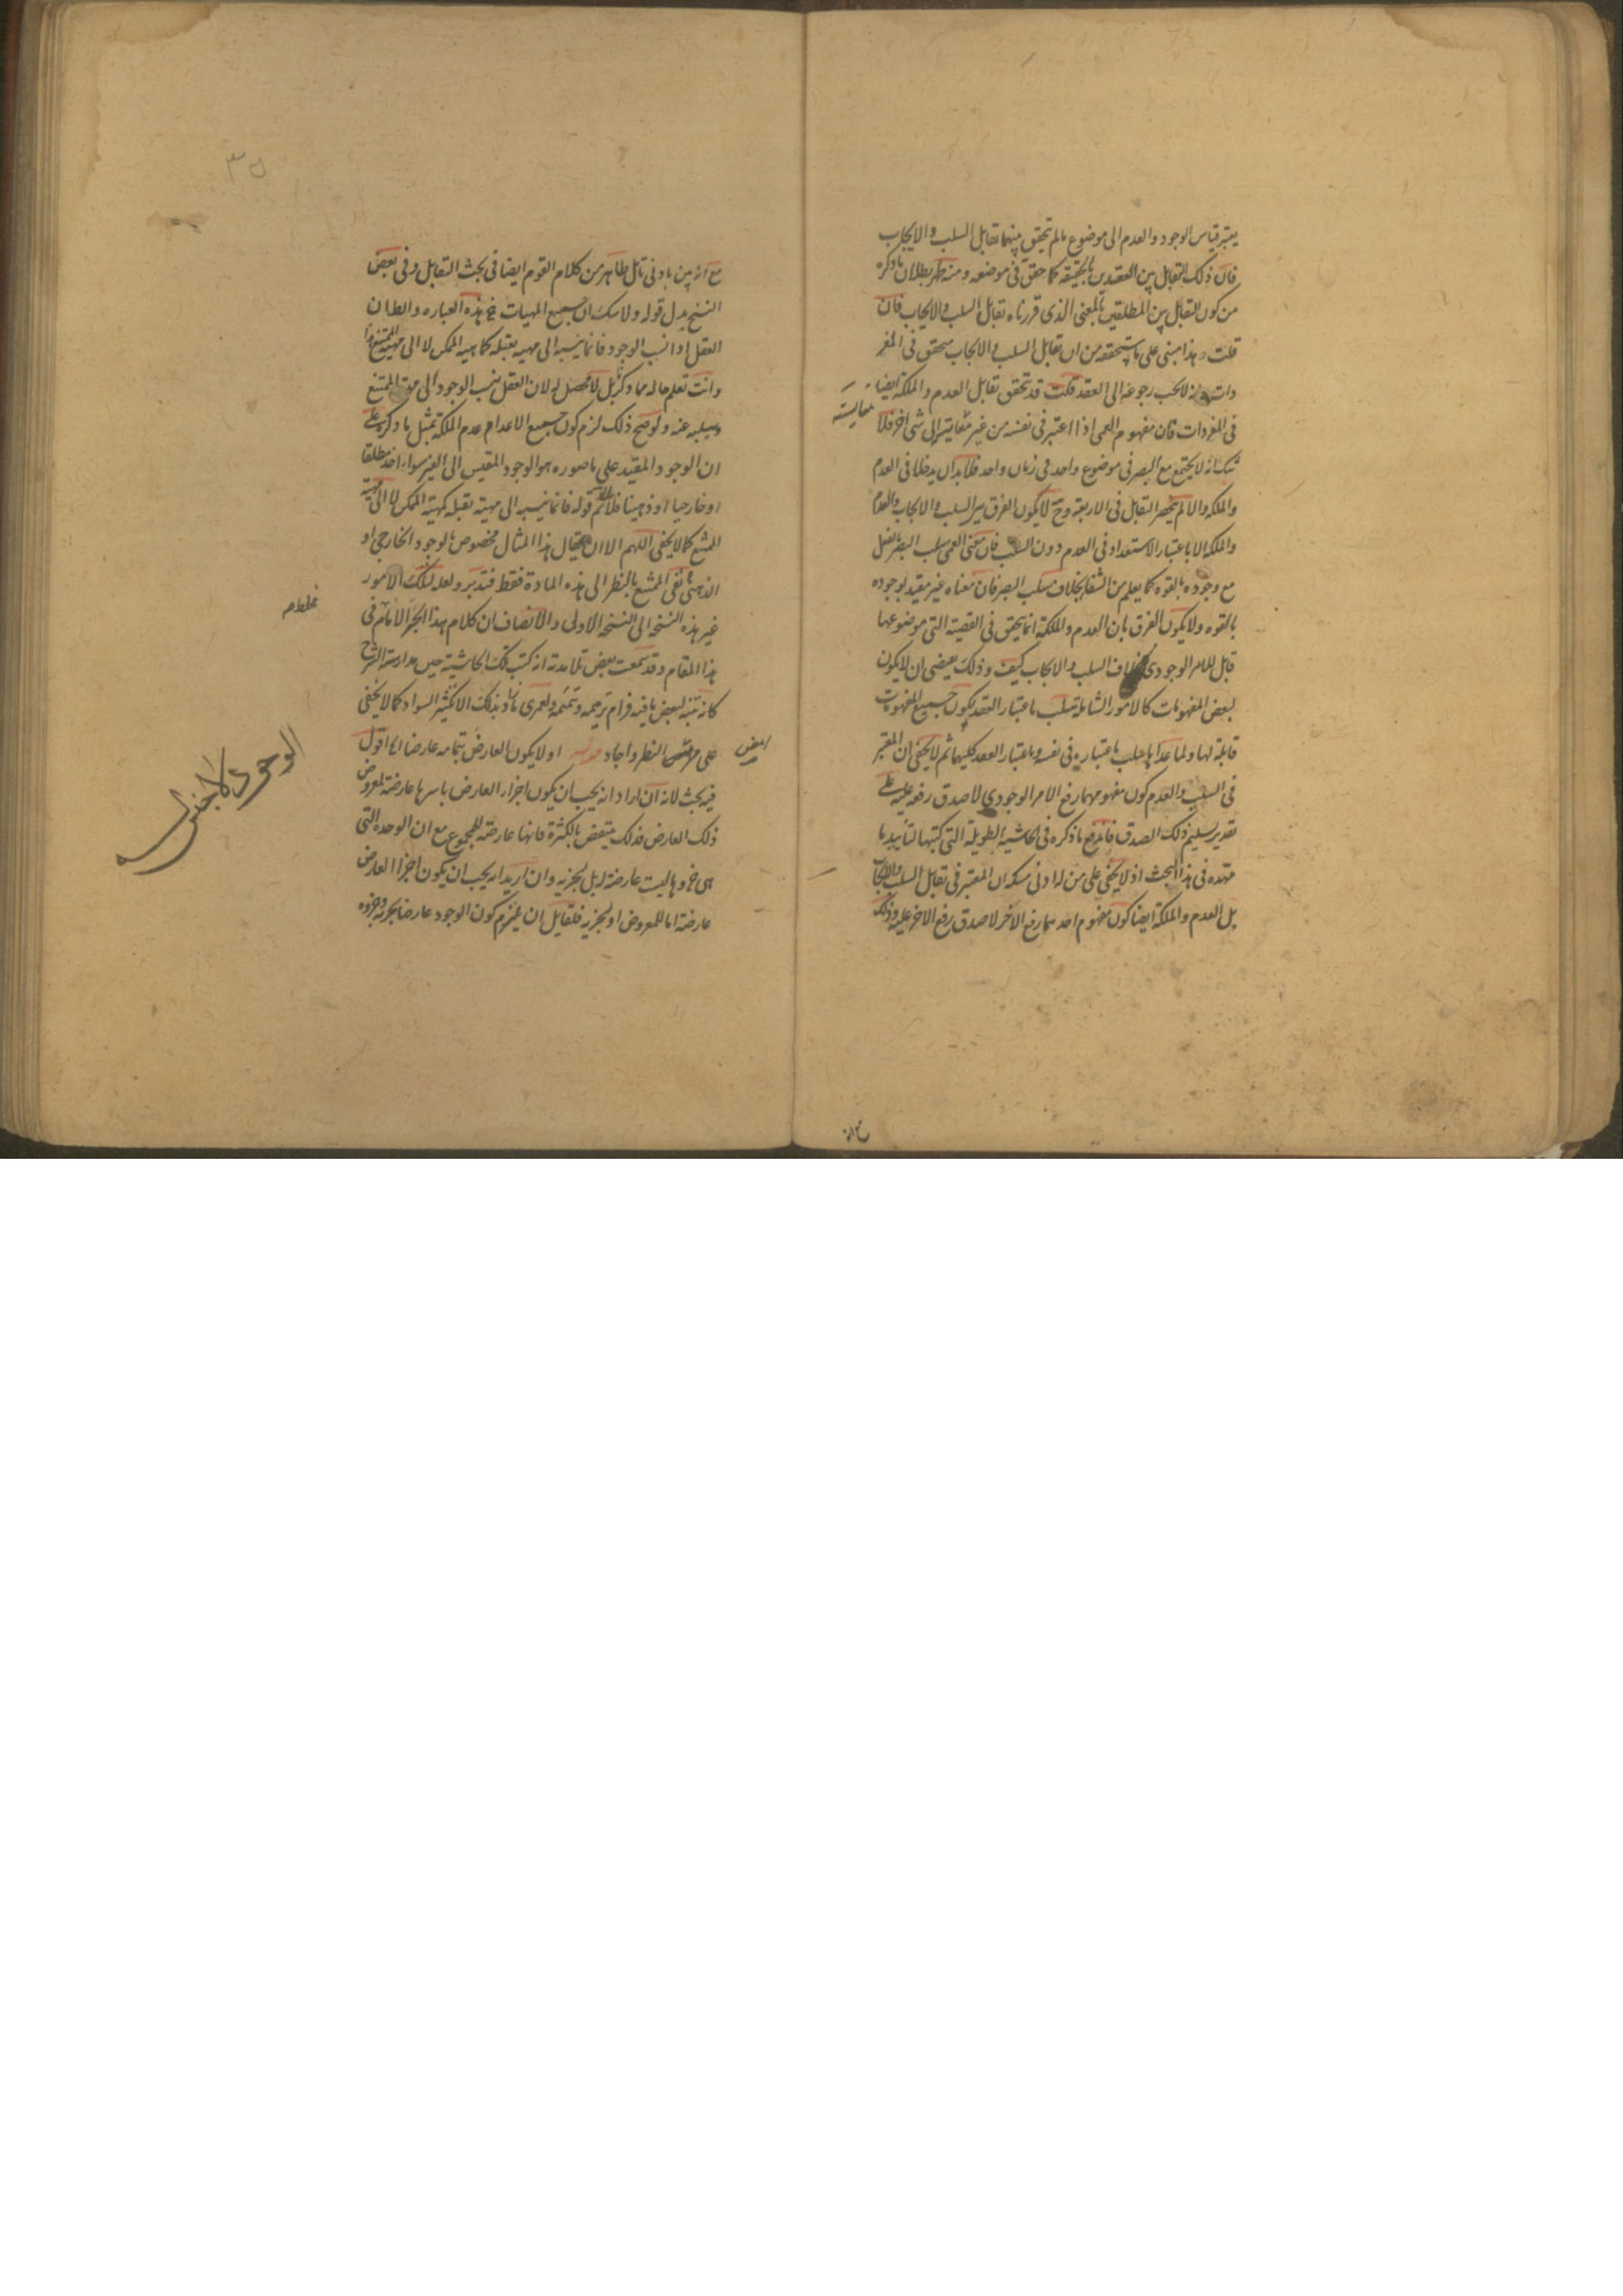 يعتبر قياس الوجود والعدم الى موضوع ما لم يتحقق بينهما تقابل السلب والايجاب
فان ذلك التقابل بين العقدين بالحقيقة كما حقق فى موضعه ومنه ظهر بطلان ما ذكره
من كون التقابل بين المطلقين بالمعنى الذى قررناه تقابل السلب والايجاب فان
قلت هذا مبنى على ما ستحققه من ان تقابل السلب والايجاب يتحقق فى المفر
دات وانه لا يجب رجوعه الى العقد قلت قد تحقق تقابل العدم والملكة ايضا
فى المفردات فان مفهوم العمى اذا اعتبر فى نفسه من غير مقايسته الى شى اخر فلا
مقايسته
شك انه لا يجتمع مع البصر فى موضوع واحد فى زمان واحد فلا بد ان يدخلا فى العدم
والملكة والا لم ينحصر التقابل فى الاربعة وح لا يكون الفرق بين السلب والايجاب والعدم
والملكة الا باعتبار الاستعداد فى العدم دون السلب فان معنى العمى سلب البصر بالفعل
مع وجوده بالقوه كما يعلم من الشفا بخلاف سلب البصر فان معناه غير مقيد بوجوده
بالقوه ولا يكون الفرق بان العدم والملكة انما يتحقق فى القضية التى موضوعها
قابل للامر الوجودى بخلاف السلب والايجاب كيف وذلك يقتضى ان لا يكون
لبعض المفهومات كالامور الشاملة سلب باعتبار العقد لكون جميع المفهومات
قابلة لها ولما عداها سلب باعتباره فى نفسه وباعتبار العقد كليهما ثم لا يخفى ان المعتبر
فى السلب والعدم كون مفهومهما رفع الامر الوجودى لا صدق رفعه عليه على
تقدير تسليم ذلك الصدق فاندفع ما ذكره فى الحاشية الطويلة التى كتبها لتأييد ما
مهده فى هذا البحث اذ لا يخفى على من له ادنى مسكه ان المعتبر فى تقابل السلب والايجاب
بل العدم والملكة ايضا كون مفهوم احدهما رفع الآخر لا صدق رفع الاخر عليه وذلك
مع انه
٣٥
مع انه بين بادنى تأمل ظاهر من كلام القوم ايضا فى بحث التقابل وفى بعض
النسخ بدل قوله ولا شك ان جميع المهيات الخ هذه العبارة والظ ان
العقل اذا نسب الوجود فانما ينسبه الى مهيه تقبله كماهيه الممكن لا الى مهية الممتنع
وانت تعلم حاله مما ذكر بل لا محصل له لان العقل ينسب الوجود الى الممتنع
ويسلبه عنه ولو صح ذلك لزم كون جميع الاعدام عدم الملكة بمثل ما ذكره على
ان الوجود المقيد على ما صوره هو الوجود المقيس الى الغير سواء اخذ مطلقا
او خارجيا او ذهنيا فلا يتم قوله فانما ينسبه الى مهية تقبله كمهية الممكن لا الى مهية
الممتنع كما لا يخفى اللهم الا ان يقال هذا المثال مخصوص بالوجود الخارجى او
الذهنى نفى الممتنع بالنظر الى هذه المادة فقط فتدبر ولعله لتلك الامور
غير هذه النسخه الى النسخه الاولى والانصاف ان كلام هذا الحبر الامام فى
هذا المقام وقد سمعت بعض تلامذته انه كتب تلك الحاشية حين مدارسة الشرح
كانه تنبه لبعض ما فيه فرام ترميمه وتتميمه ولعمرى ما زاد بذلك الا تكثير السواد كما لا يخفى
على من النظر واجاد قوله او لا يكون العارض بتمامه عارضا الخ اقول
فيه بحث لانه ان اراد انه يجب ان يكون اجزاء العارض باسرها عارضة لمعروض
ذلك العارض فذلك ينتقض بالكثرة فانها عارضة للمجموع مع ان الوحدة التى
هى جزؤها ليست عارضة له بل لجزئه وان اريد انه يجب ان يكون اجزاء العارض
عارضة اما للمعروض او لجزئه فلقايل ان يلتزم كون الوجود عارضا لجزئه وجزؤه